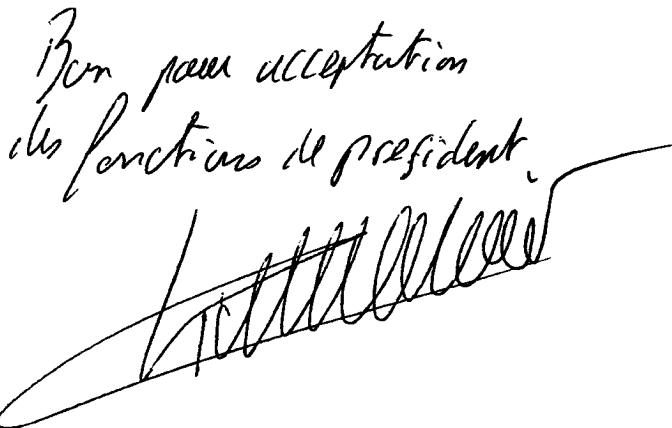 Bon pour acceptation
des fonctions de president.